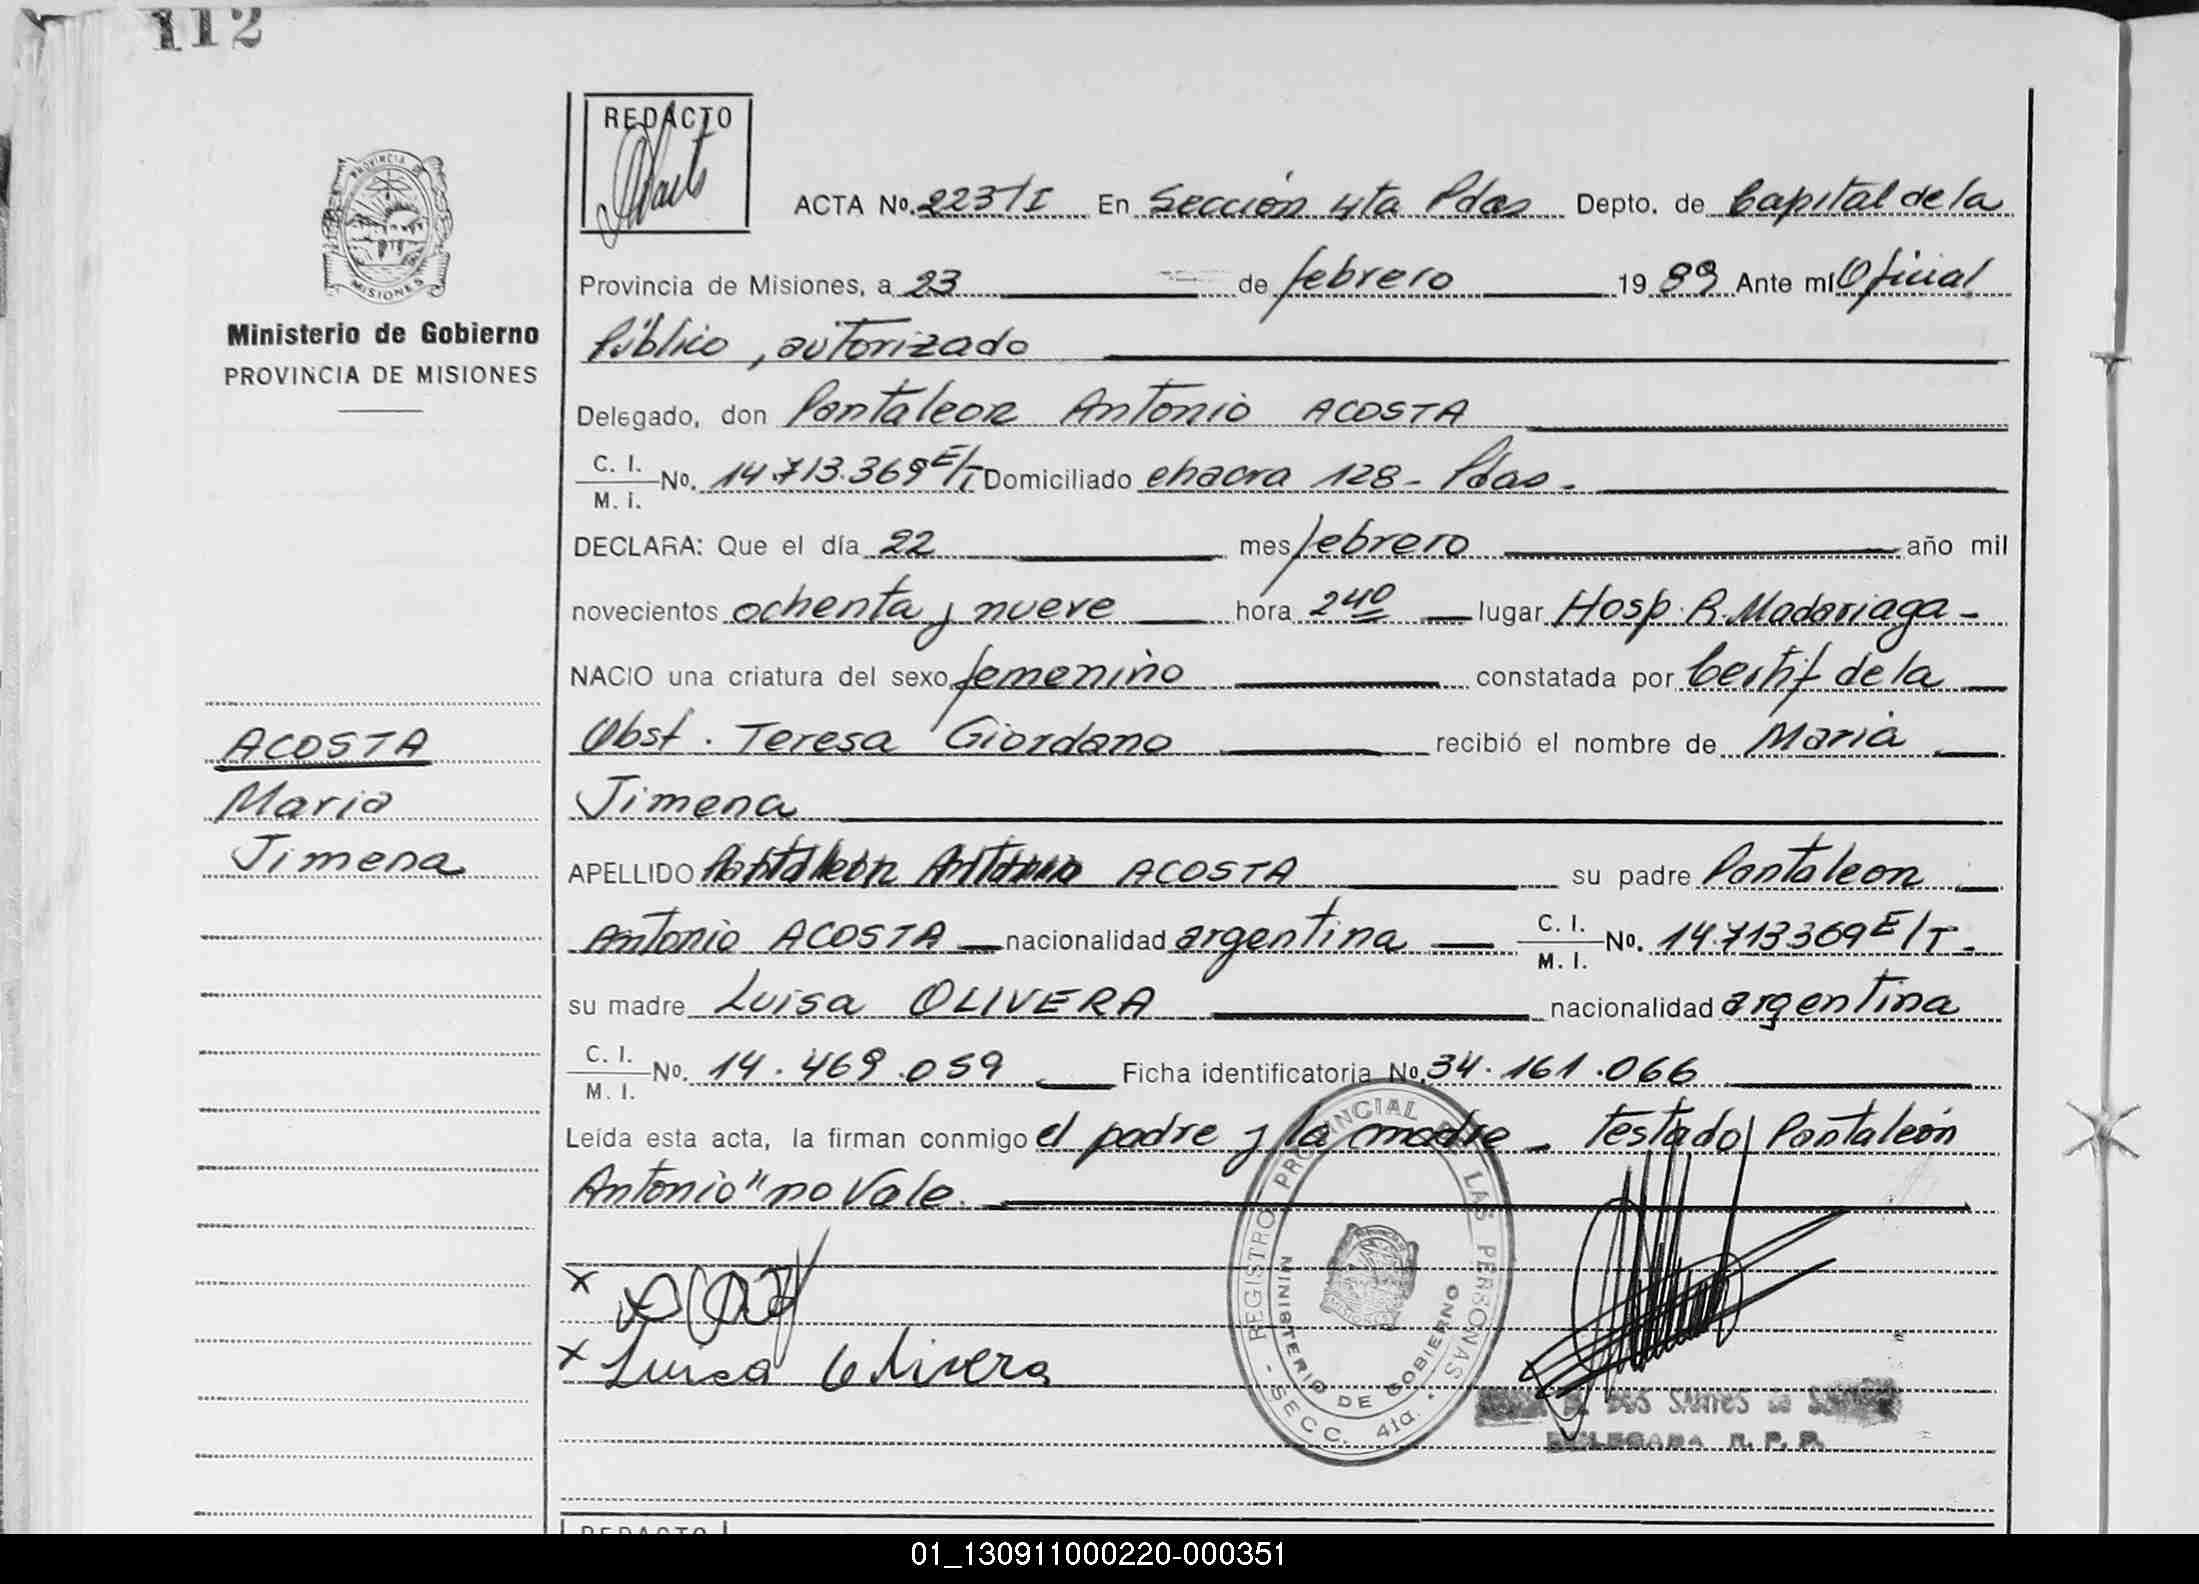 112
REDACTO
PROVINCIA DE
MISIONES
Ministerio de Gobierno
PROVINCIA DE MISIONES
ACOSTA
Maria
Jimena
ACTA No. 223/I En Sección 4ta Pdas Depto. de Capital de la
Provincia de Misiones, a 23 de febrero 1989 Ante mí Oficial
Público, autorizado
Delegado, don Pantaleon Antonio ACOSTA
C. I. M. I. No. 14.713.369 E/T Domiciliado chacra 128 - Pdas -
DECLARA: Que el día 22 mes febrero año mil
novecientos ochenta y nueve hora 240 lugar Hosp. R. Madariaga -
NACIO una criatura del sexo femenino constatada por Certif de la
Obst. Teresa Giordano recibió el nombre de Maria
Jimena
APELLIDO Pantaleon Antonio ACOSTA su padre Pantaleon
Antonio ACOSTA nacionalidad argentina C. I. M. I. No. 14.713369 E/T -
su madre Luisa OLIVERA nacionalidad argentina
C. I. M. I. No. 14.469.059 Ficha identificatoria No. 34.161.066
Leída esta acta, la firman conmigo el padre y la madre - Testado Pantaleón
Antonio" no Vale.
x
x Luisa Olivera
REGISTRO PROVINCIAL DE LAS PERSONAS - SECC. 4ta. -
MINISTERIO DE GOBIERNO
DOS SANTOS de
DELEGADA R. P. P.
REDACTO
01_130911000220-000351